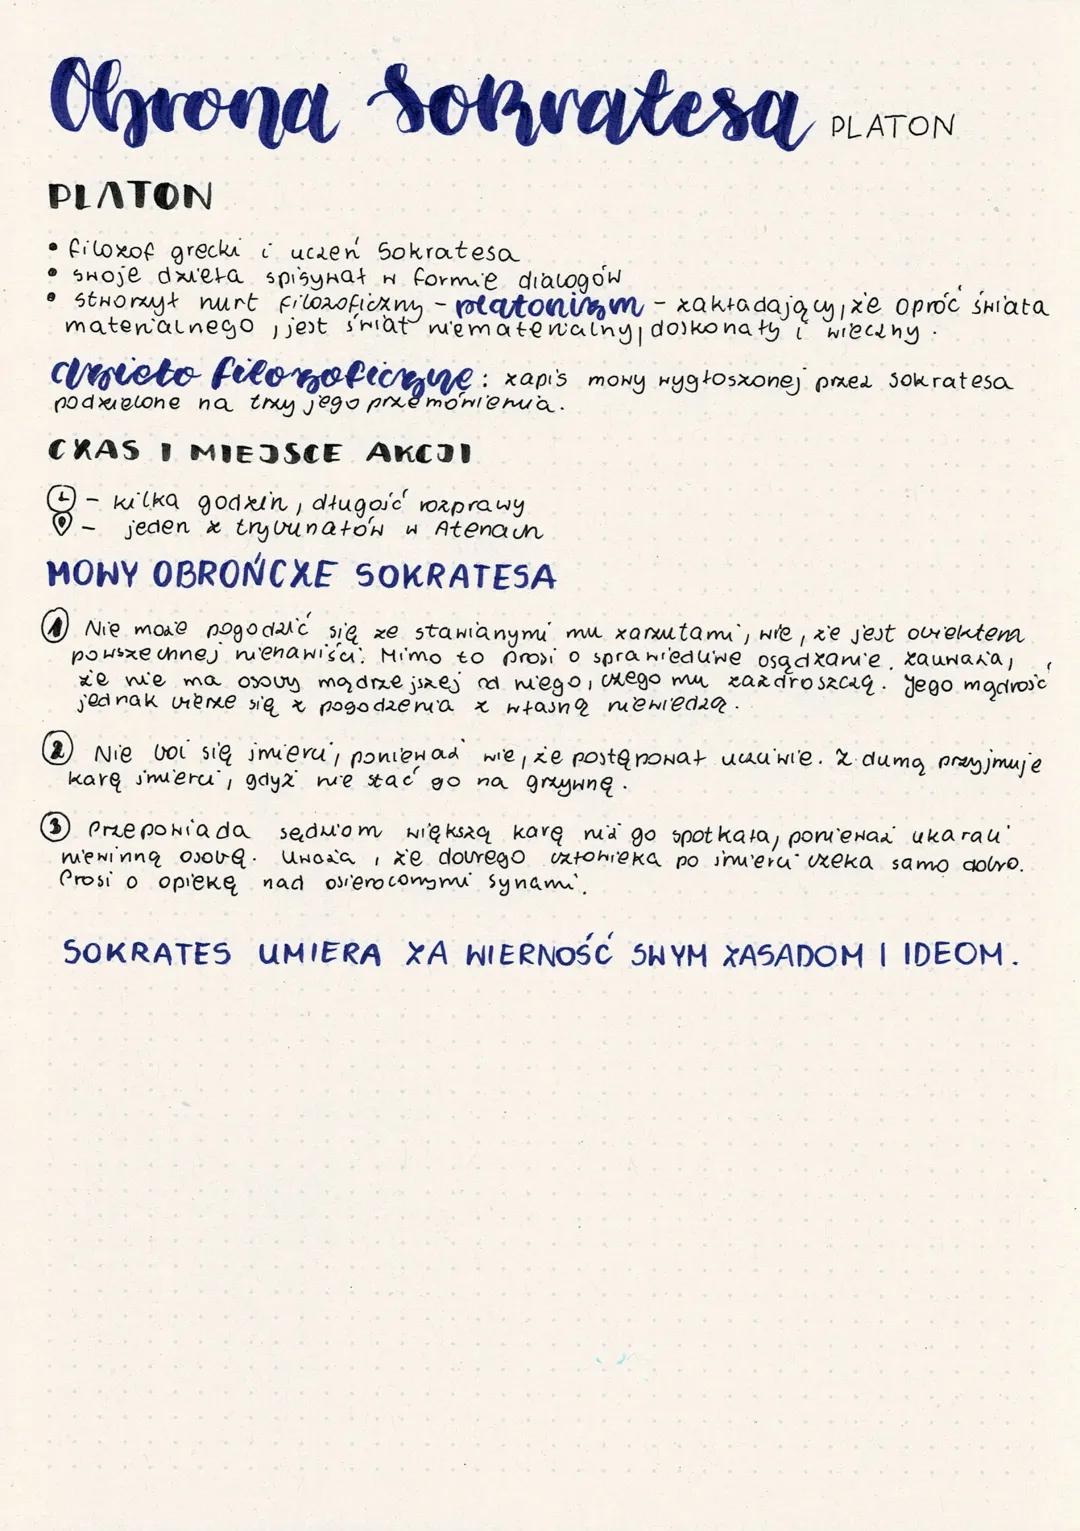 Obrona Sokratesa PLATON
PLATON
• filozof grecki i uczeń Sokratesa
• swoje dzieła spisywał w formie dialogów
• stworzył nurt filozoficzny - platonizm - zakładający, że oprócz świata
materialnego, jest świat niematerialny, doskonały i wieczny.
dzieło filozoficzne: zapis mowy wygłoszonej przez Sokratesa
podzielone na trzy jego przemówienia.
CZAS I MIEJSCE AKCJI
- kilka godzin, długość rozprawy
- jeden z trybunałów w Atenach
MOWY OBROŃCZE SOKRATESA
1 Nie może pogodzić się ze stawianymi mu zarzutami, wie, że jest obiektem
powszechnej nienawiści. Mimo to prosi o sprawiedliwe osądzanie. zauważa,
że nie ma osoby mądrzejszej od niego, czego mu zazdroszczą. Jego mądrość
jednak bierze się z pogodzenia z własną niewiedzą.
2 Nie boi się śmierci, ponieważ wie, że postępował uczciwie. Z dumą przyjmuje
karę śmierci, gdyż nie stać go na grzywnę.
3 Przepowiada sędziom większą karę niż go spotkała, ponieważ ukarali
niewinną osobę. Uważa, że dobrego człowieka po śmierci czeka samo dobro.
Prosi o opiekę nad osieroconymi synami.
SOKRATES UMIERA ZA WIERNOŚĆ SWYM ZASADOM I IDEOM.